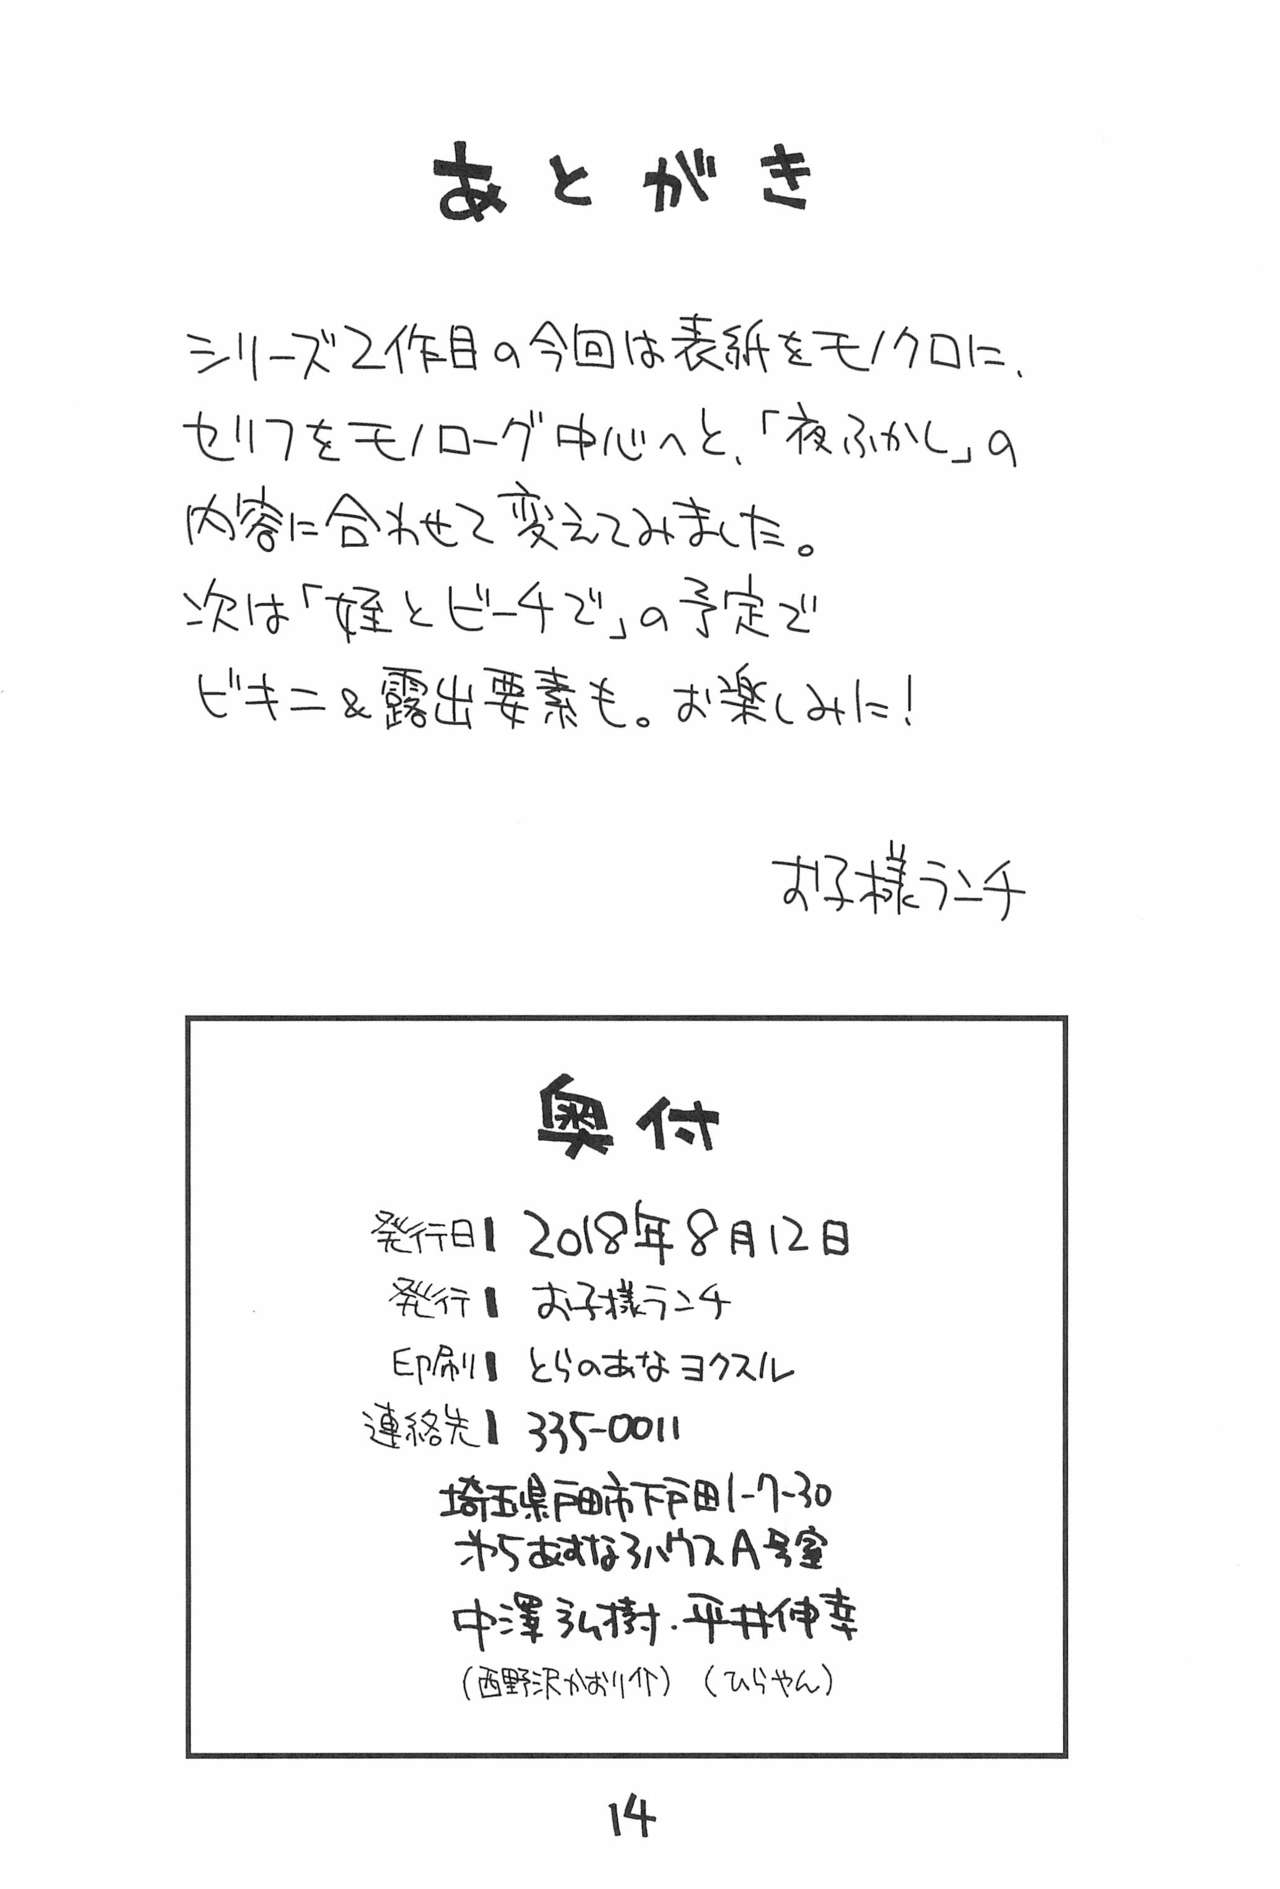 あとがき
シリーズ2作目の今回は表紙をモノクロに、
セリフをモノローグ中心へと、「夜ふかし」の
内容に合わせて変えてみました。
次は「姪とビーチで」の予定で
ビキニ&露出要素も。お楽しみに!
お子様ランチ
奥付
発行日 2018年8月12日
発行 お子様ランチ
印刷 とらのあなヨクスル
連絡先 335-0011
埼玉県戸田市下戸田1-7-30
第5あすなろハウスA号室
中澤弘樹・平井伸幸
(西野沢かおり介) (ひらやん)
14